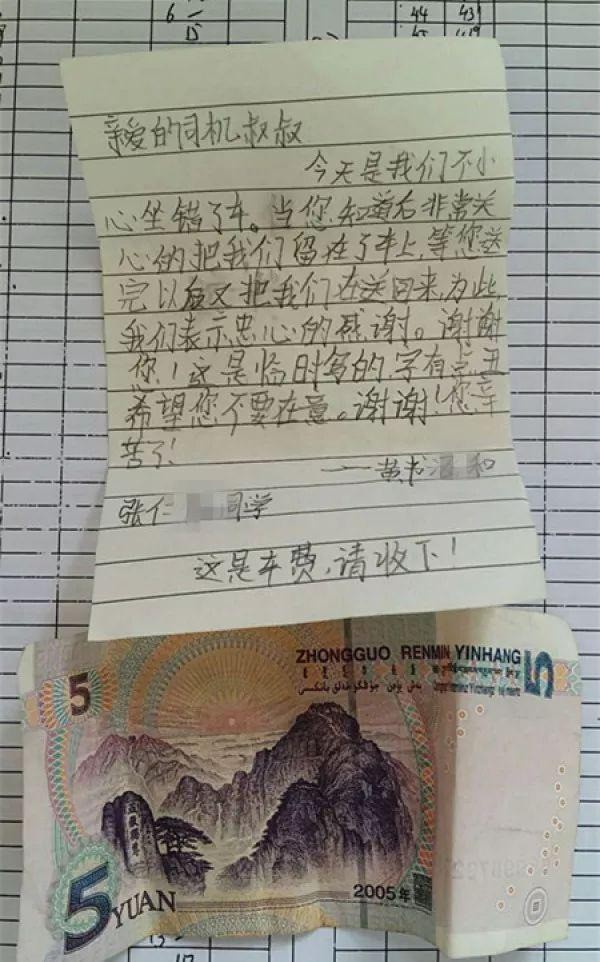 6
15
44 43
45 419
亲爱的司机叔叔
今天是我们不小
心坐错了车。当您知道后非常关
心的把我们留在了车上,等您送
完以后又把我们在送回来,为此,
我们表示忠心的感谢。谢谢
您!这是临时写的,字有点丑
希望您不要在意。谢谢!您辛
苦了!
——黄书 和
张仁 同学
这是车费,请收下!
ZHONGGUO RENMIN YINHANG
5
5
5 YUAN
2005年
17